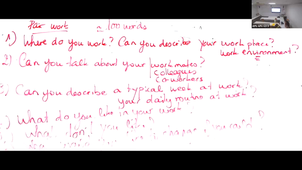 Her work ≈ 100 words
1) Where do you work? Can you describe your work place?
work environment?
2) Can you talk about your workmates?
colleagues
coworkers
Can you describe a typical week at work?
your daily routine at work
) What do you like in your work
What don't you like